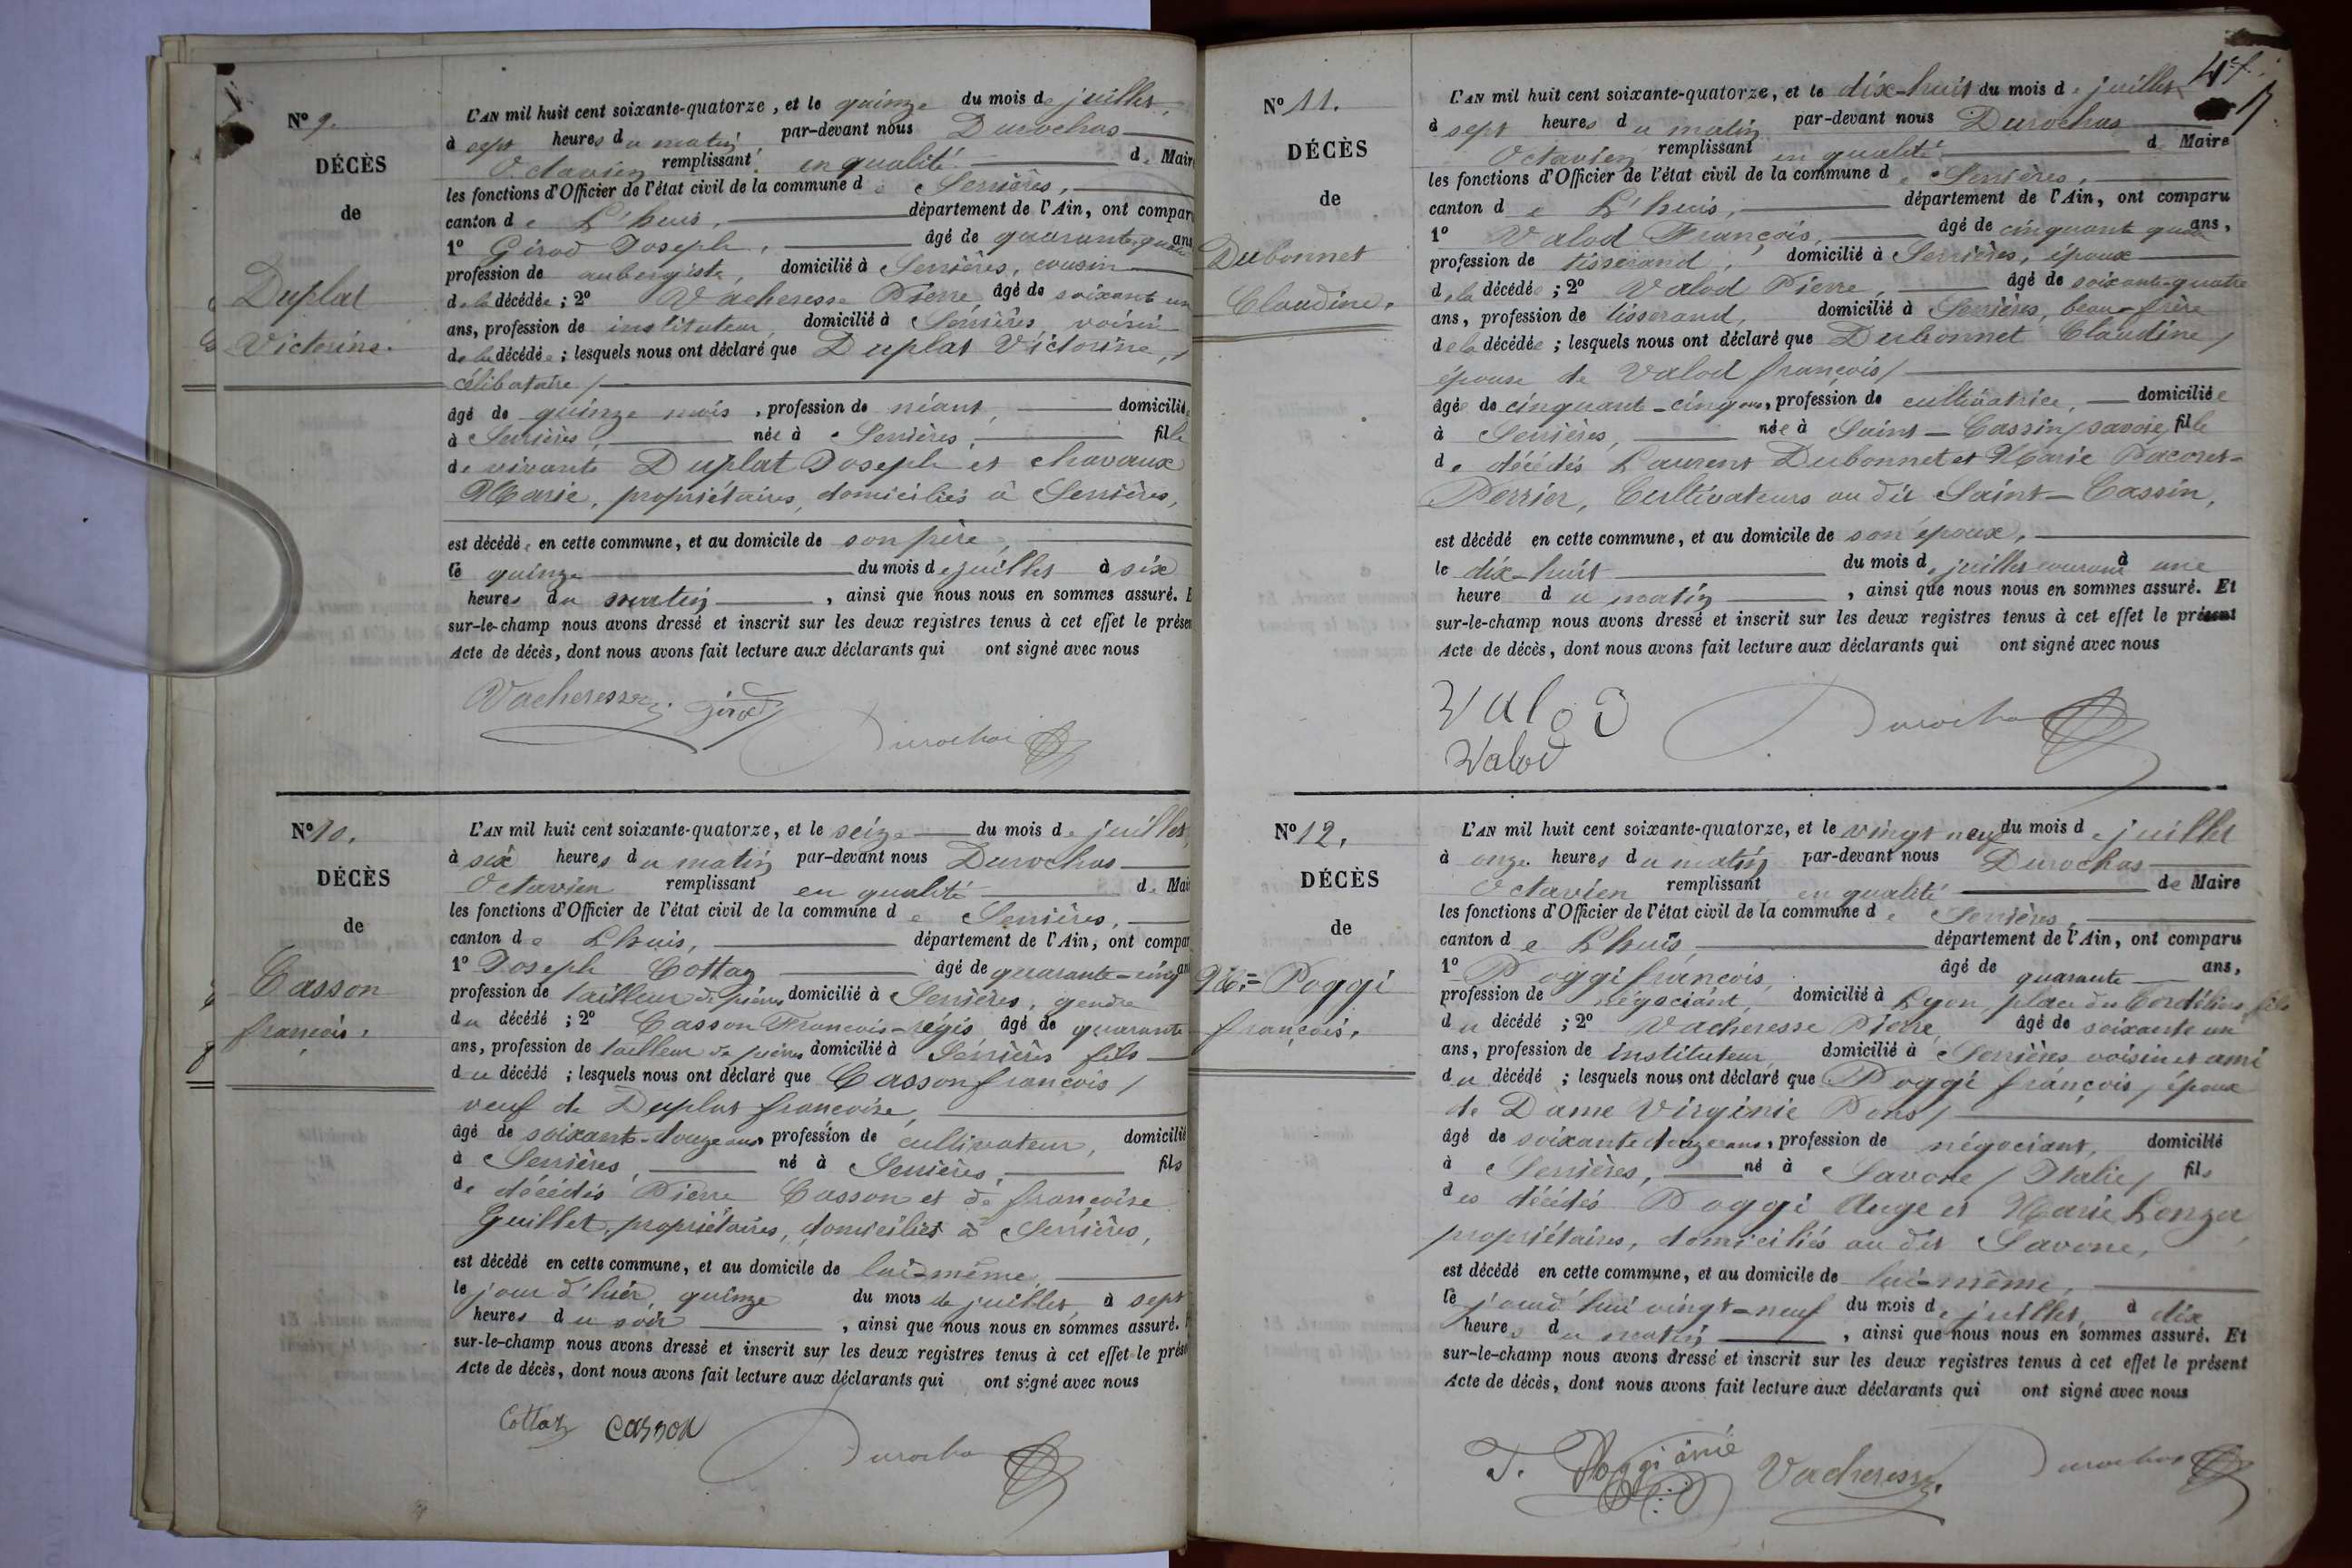 N° 9.
DÉCÈS
de
Duplat
Victorine.
L'AN mil huit cent soixante-quatorze, et le quinze du mois de juillet,
à sept heures du matin, par-devant nous Durochas
Octavien remplissant en qualité de Maire
les fonctions d'Officier de l'état civil de la commune de Serrières,
canton de L'huis, département de l'Ain, ont compar
1° Girod Joseph, âgé de quarante quatre ans
profession de aubergiste, domicilié à Serrières, cousin
de la décédée ; 2° Vacheresse Pierre, âgé de soixante un
ans, profession de instituteur, domicilié à Serrières, voisin
de la décédée ; lesquels nous ont déclaré que Duplat Victorine, /
célibataire /
âgé de quinze mois, profession de néant, domicilié
à Serrières, née à Serrières, fille
de vivants Duplat Joseph et Chavaux
Marie, propriétaires, domiciliés à Serrières,
est décédée en cette commune, et au domicile de son père,
le quinze du mois de juillet à six
heures du matin, ainsi que nous nous en sommes assuré. E
sur-le-champ nous avons dressé et inscrit sur les deux registres tenus à cet effet le présen
Acte de décès, dont nous avons fait lecture aux déclarants qui ont signé avec nous
Vacheresse girod
Durochas
N° 10.
DÉCÈS
de
Casson
françois.
L'AN mil huit cent soixante-quatorze, et le seize du mois de juillet,
à six heures du matin par-devant nous Durochas
Octavien remplissant en qualité de Mair
les fonctions d'Officier de l'état civil de la commune de Serrières,
canton de Lhuis, département de l'Ain, ont compar
1° Joseph Cottaz âgé de quarante-cinq ans
profession de tailleur de pierres domicilié à Serrières, gendre
du décédé ; 2° Casson François-régis âgé de quarante
ans, profession de tailleur de pierres domicilié à Serrières fils
du décédé ; lesquels nous ont déclaré que Casson françois /
veuf de Duplat françoise,
âgé de soixante-douze ans, profession de cultivateur, domicilié
à Serrières, né à Serrières, fils
de décédés Pierre Casson et de françoise
Guillet, propriétaires, domiciliés à Serrières,
est décédé en cette commune, et au domicile de lui-même,
le jour d'hier, quinze du mois de juillet, à sept
heures du soir, ainsi que nous nous en sommes assuré.
sur-le-champ nous avons dressé et inscrit sur les deux registres tenus à cet effet le prése
Acte de décès, dont nous avons fait lecture aux déclarants qui ont signé avec nous
Cottaz casson
Durochas
47
N° 11.
DÉCÈS
de
Dubonnet
Claudine.
L'AN mil huit cent soixante-quatorze, et le dix-huit du mois de juillet
à sept heures du matin par-devant nous Durochas
Octavien remplissant en qualité de Maire
les fonctions d'Officier de l'état civil de la commune de Serrières,
canton de L'huis, département de l'Ain, ont comparu
1° Valod François, âgé de cinquante quatre ans,
profession de tisserand, domicilié à Serrières, époux
de la décédée ; 2° Valod Pierre, âgé de soixante-quatre
ans, profession de tisserand, domicilié à Serrières, beau-frère
de la décédée ; lesquels nous ont déclaré que Dubonnet Claudine /
épouse de Valod françois /
âgée de cinquante-cinq ans, profession de cultivatrice, domiciliée
à Serrières, née à Saint-Cassin / savoie, fille
de décédés Laurent Dubonnet et Marie Pacoret-
Perrier, Cultivateurs au dit Saint-Cassin,
est décédé en cette commune, et au domicile de son époux,
le dix-huit du mois de juillet courant à une
heure du matin, ainsi que nous nous en sommes assuré. Et
sur-le-champ nous avons dressé et inscrit sur les deux registres tenus à cet effet le présent
Acte de décès, dont nous avons fait lecture aux déclarants qui ont signé avec nous
Valod
Valod
Durochas
N° 12.
DÉCÈS
de
Poggi
françois.
L'AN mil huit cent soixante-quatorze, et le vingt neuf du mois de juillet
à onze heures du matin par-devant nous Durochas
Octavien remplissant en qualité de Maire
les fonctions d'Officier de l'état civil de la commune de Serrières,
canton de Lhuis, département de l'Ain, ont comparu
1° Poggi françois, âgé de quarante ans,
profession de négociant, domicilié à Lyon, place des Cordeliers fils
du décédé ; 2° Vacheresse Pierre, âgé de soixante un
ans, profession de instituteur, domicilié à Serrières voisin et ami
du décédé ; lesquels nous ont déclaré que Poggi françois / époux
de Dame Virginie Pons /
âgé de soixante douze ans, profession de négociant, domicilié
à Serrières, né à Savone / Italie / fils
des décédés Poggi Ange et Marie Lonza,
propriétaires, domiciliés au dit Savone,
est décédé en cette commune, et au domicile de lui-même,
le jourd'hui vingt-neuf du mois de juillet, à dix
heures du matin, ainsi que nous nous en sommes assuré. Et
sur-le-champ nous avons dressé et inscrit sur les deux registres tenus à cet effet le présent
Acte de décès, dont nous avons fait lecture aux déclarants qui ont signé avec nous
Poggi ainé Vacheresse Durochas